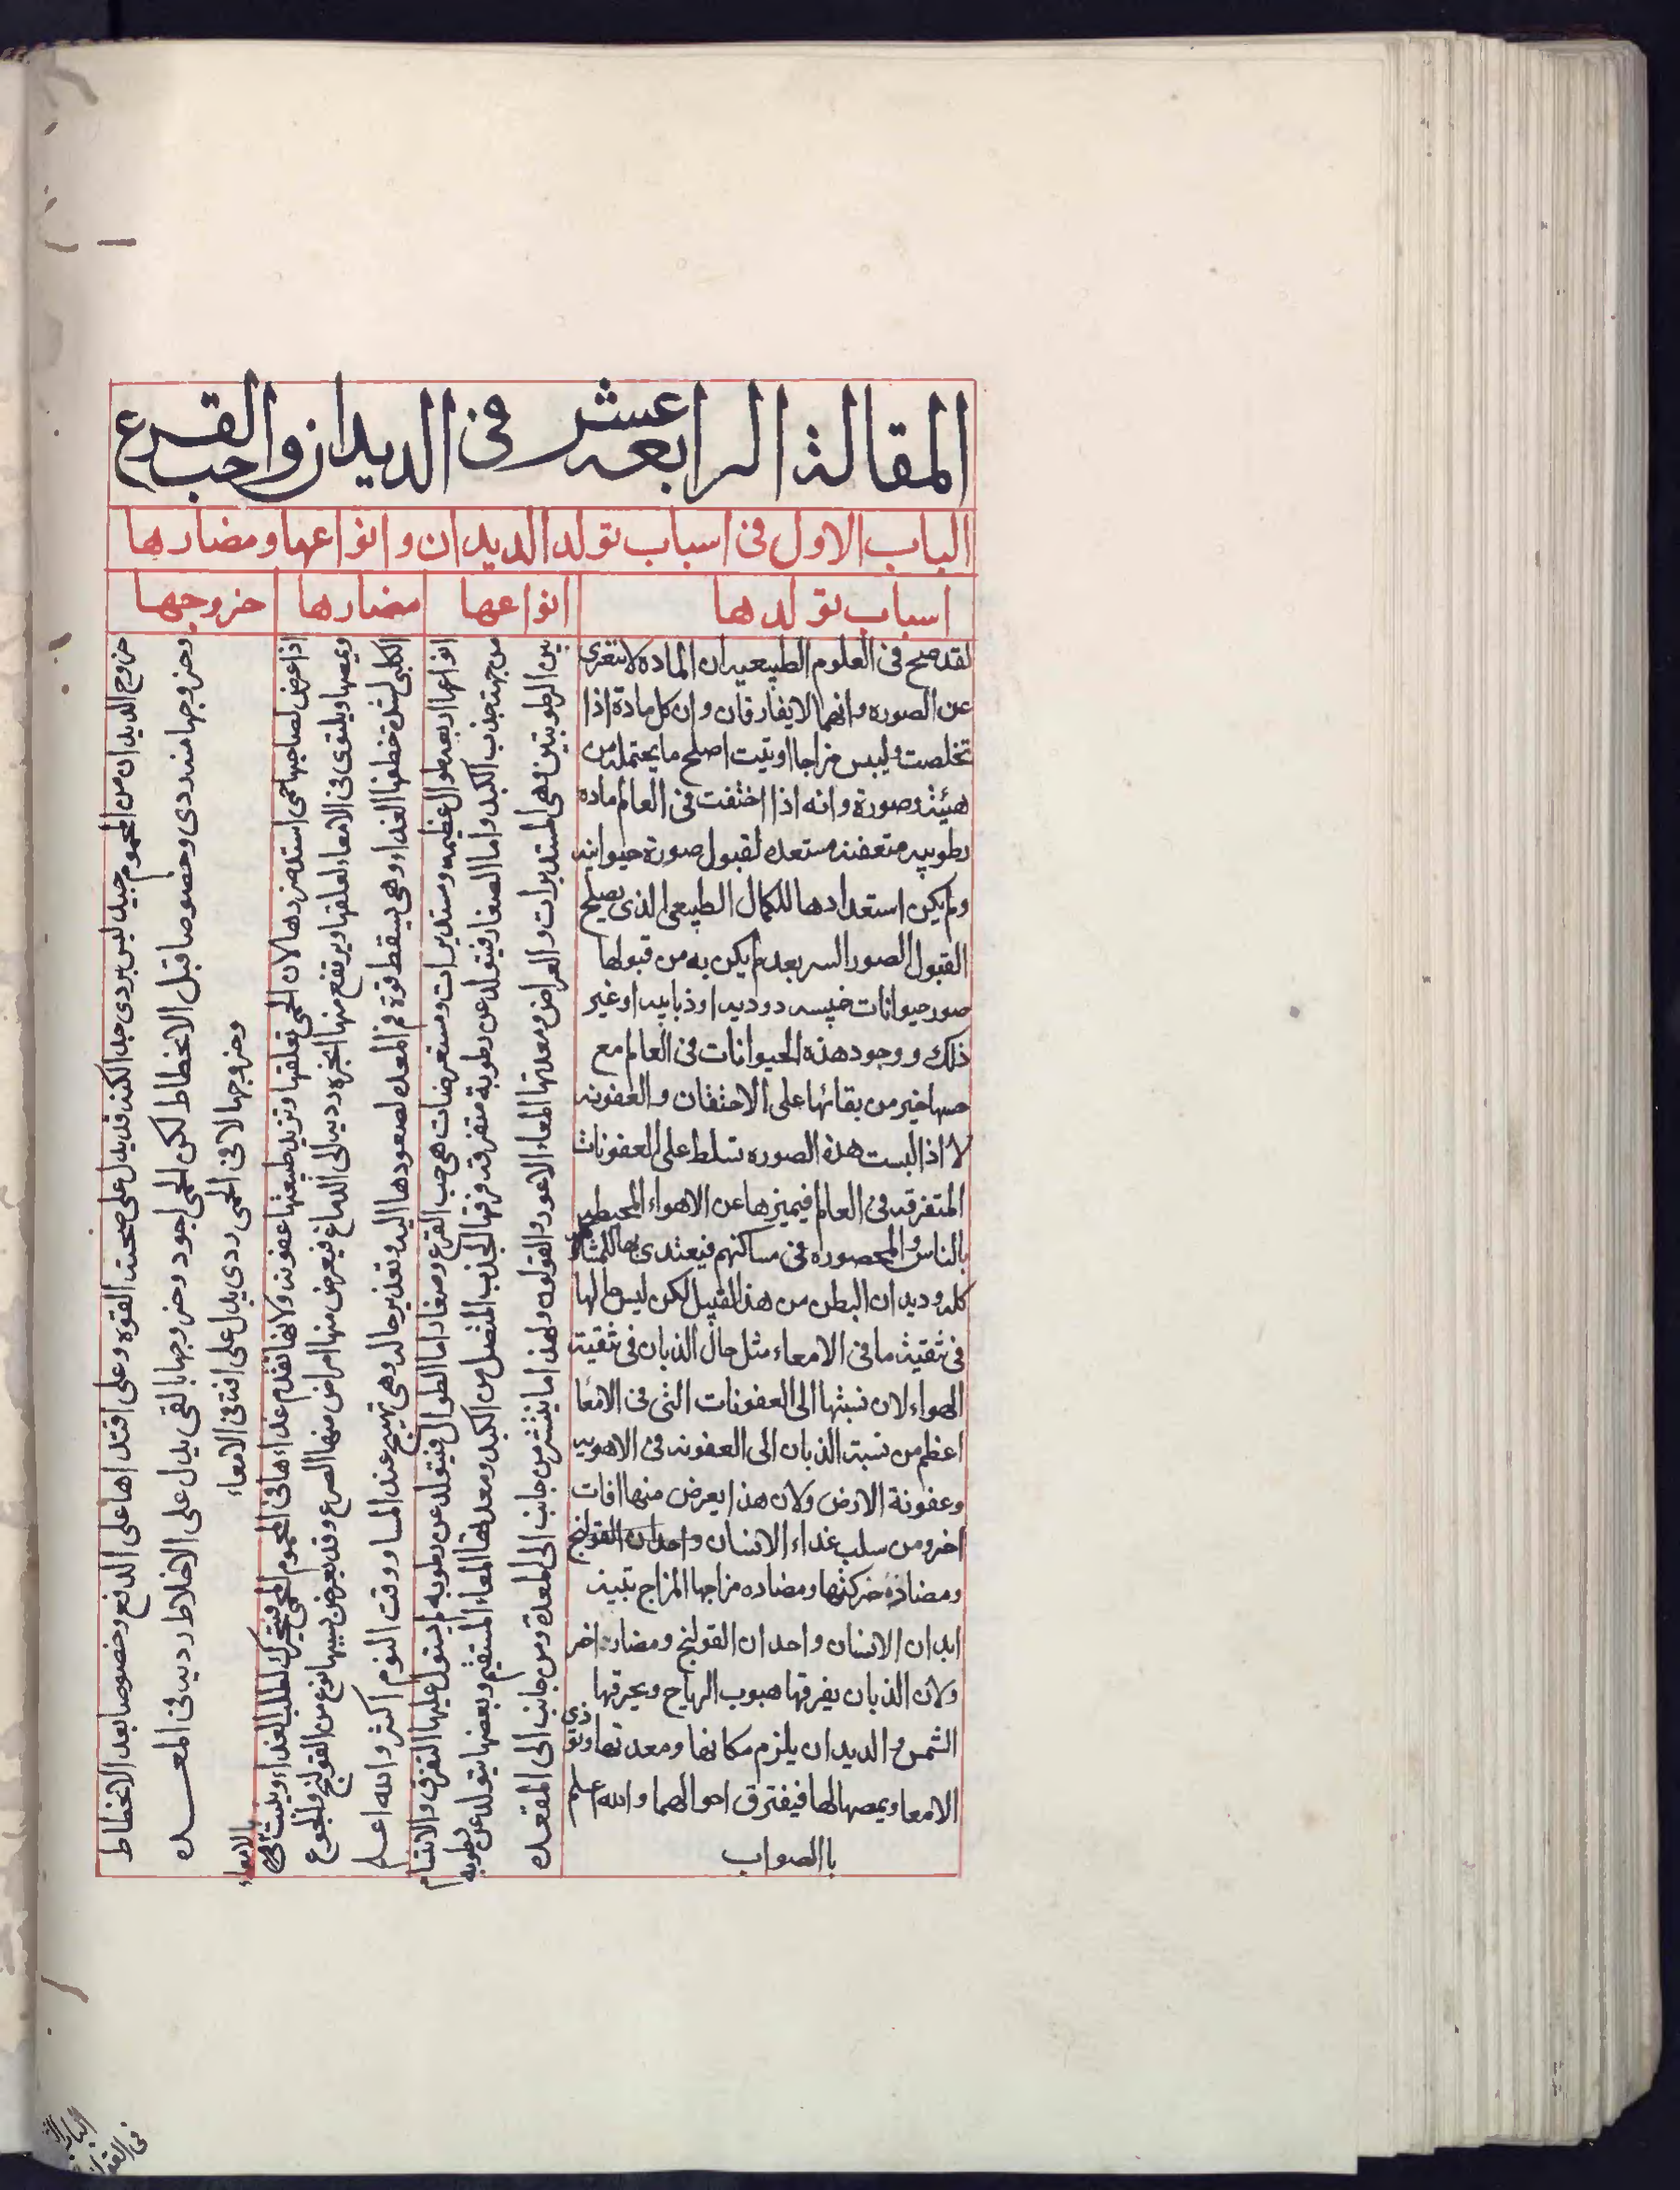 المقالة الرابعه عشر فى الديدان وحب القرع
الباب الاول فى اسباب تولد الديدان وانواعها ومضارها
اسباب تولدها
انواعها
مضارها
خروجها
لقد صح فى العلوم الطبيعيه ان الماده لا تتعرى
عن الصوره وانهما لايفارقان وان كل مادة اذا
تخلصت وليس مزاجا اوتيت اصلح ما يحتمله من
هيئة وصورة وانه اذا اختفت فى العالم ماده
رطوبيه متعفنه مستعده لقبول صورة حيوانيه
ولم يكن استعدادها للكمال الطبيعى الذى يصلح
القبول الصور السريعه لم يكن به من قبولها
صور حيوانات خسيسه دوديه او ذبابيه او غير
ذلك ووجود هذه الحيوانات فى العالم مع
حسها خير من بقائها على الاحتقان والعفونه
لا اذا لبست هذه الصوره تسلط على العفونات
المتفرقه فى العالم فيميزها عن الاهواء المحيطه
بالناس والمحصوره فى مساكنهم فيعتدى بها للمشاكله
كله وديدان البطن من هذا القبيل لكن ليس حالها
فى تنقيته ما فى الامعاء مثل حال الذبان فى تنقية
الهواء لان نسبتها الى العفونات التى فى الامعا
اعظم من نسبة الذبان الى العفونه فى الاهويه
وعفونة الارض ولان هذا يعرض منها افات
اخر ومن سلب غذاء الانسان واحداث القولنج
ومضادة حركتها ومضاده مزاجها المزاج
ابدان الانسان واحداث القولنج ومضار اخر
ولان الذبان يفرقها هبوب الرياح ويحرقها
الشمس والديدان يلزم مكانها ومعدتها وتوذى
الامعا ويمصها لها فيفترق احوالهما والله اعلم
باالصواب
انواعها اربعه طوال عظيمه ومستديرات ومستعرضات هى حب القرع وصغار اما الطوال فيتولد عن رطوبه لم يستول عليها التفرق والانقسام
من جهة جذب الكبد واما الصغار فيتولد عن رطوبة متفرقه فرقها الجذب المتصل من الكبد ومعدتها المعاء المستقيم وبعضها يتولد عن رطوبه
بين الرطوبتين وهى المستديرات والعراض ومعدتها المعاء الاعور والقولون ولهذا ما ينتشر من جانب الى المعدة ومن جانب الى المقعده
اذا عرض لصاحبها حمى اشتد ضررها لان الحمى تعلقها وتزيد طبيعتها عفونه ولانها تقدم غداءها فى المحموم فتتحرك لطلب الغذاء ويثبت
بالامعاء
ويمصها ويلتوى فى الامعاء لعلقها ويرتفع منها ابخره رديه الى الدماغ فيعرض منها امراض منها الصرع وقد يعرض بسببها نوع من القولنج والجوع
الكلبى لشدة خطفها الغذاء وهى يسقط قوة فم المعده لصعودها اليه وتعذير حاله وهى تهيج عند المسا ووقت النوم اكثر والله اعلم
خروج الديدان من المحموم جيد ليس بردى جدا لكنه قد يدل على صحة القوه وعلى اقتدارها على الدفع وخصوصا بعد الانحطاط
وخروجها منه ردى وخصوصا قبل الانحطاط لكن الحمى اجود وخروجها بالقى يدل على الاخلاط رديه فى المعده
وخروجها لا فى الحمى ردى يدل على افته فى الامعاء
الباب